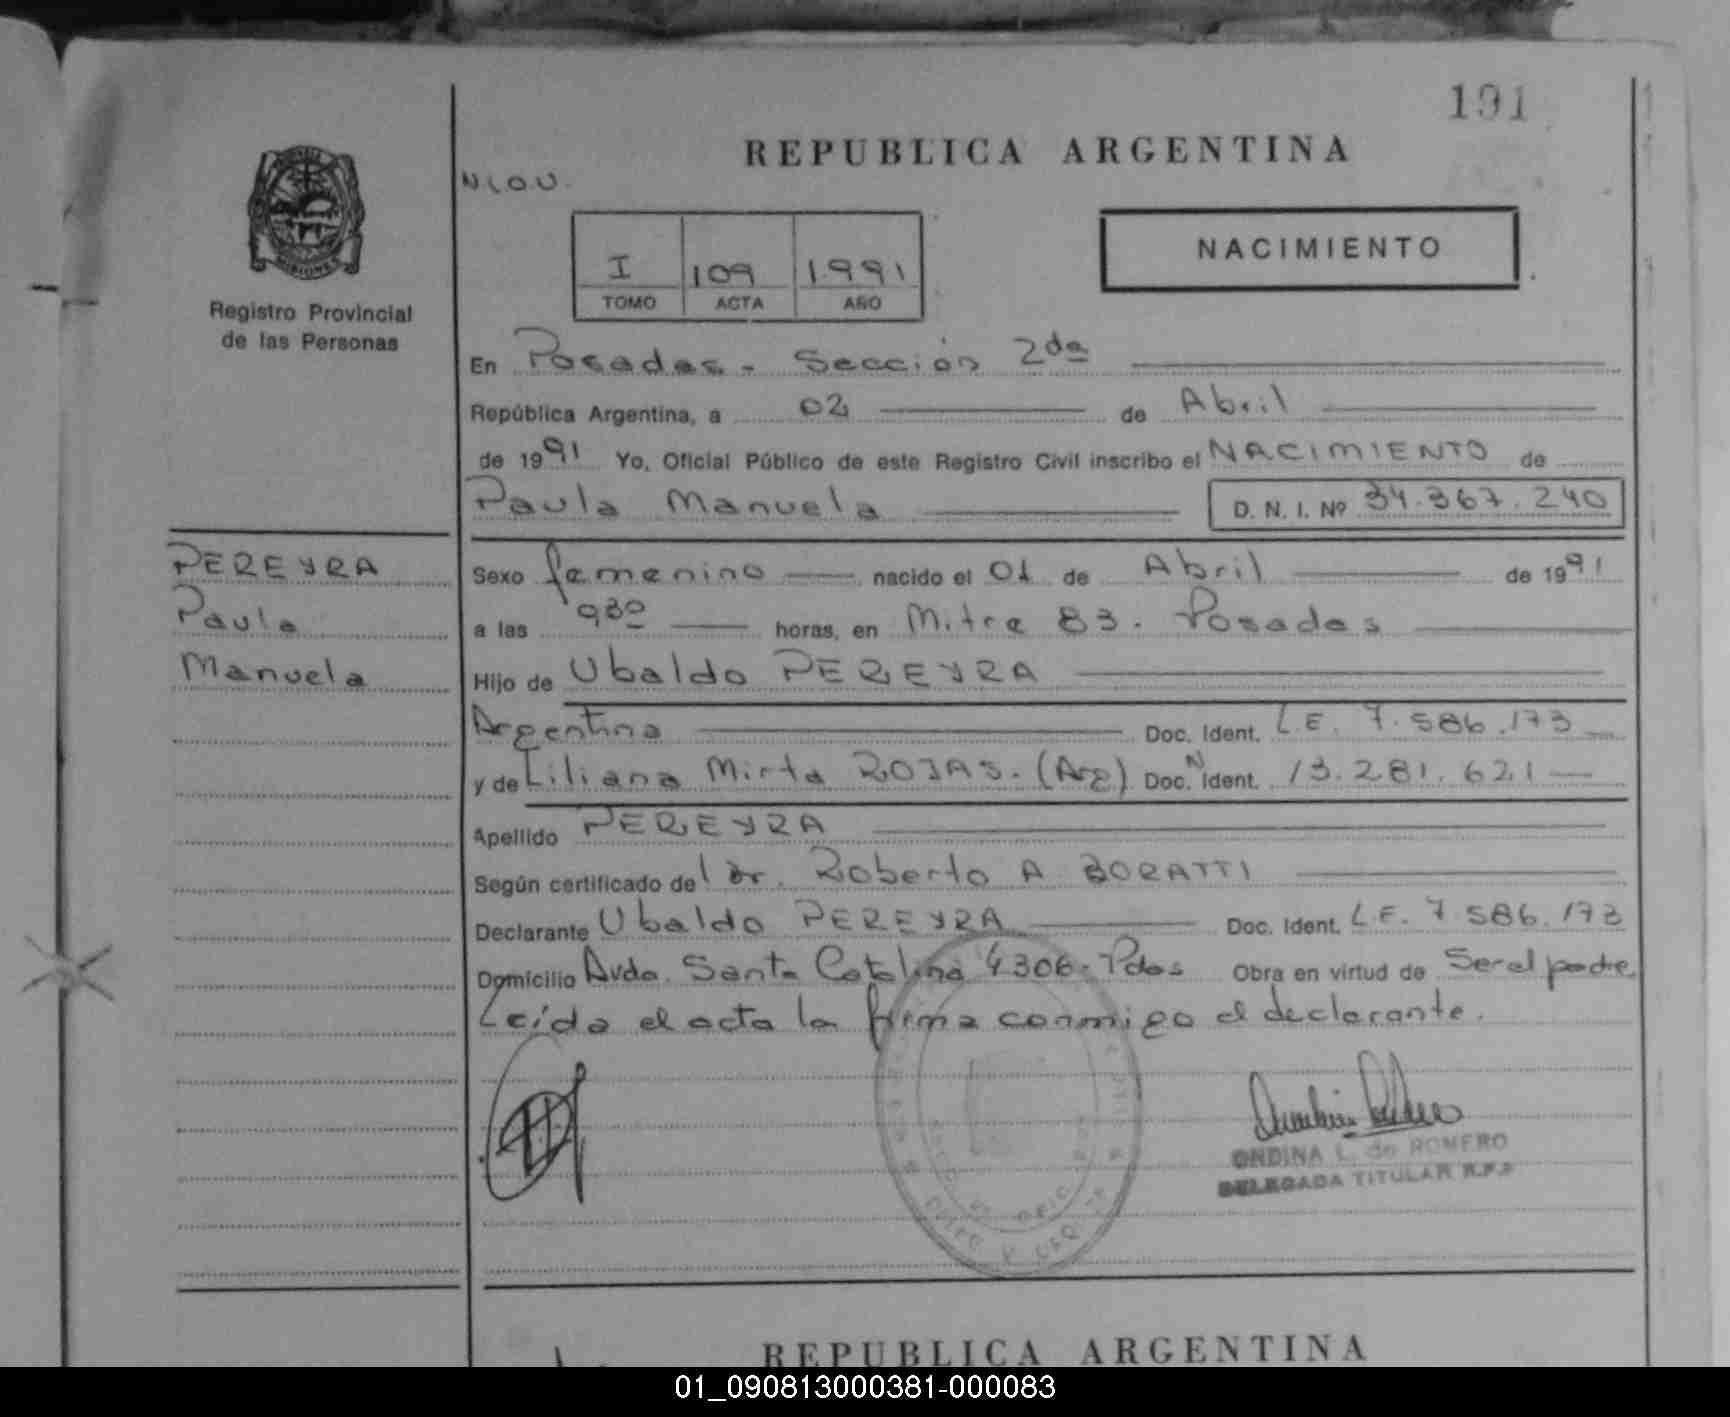 191
REPUBLICA ARGENTINA
N.I.O.U.
NACIMIENTO
I 109 1991
TOMO ACTA AÑO
MISIONES
Registro Provincial
de las Personas
En Posadas - Sección 2da
República Argentina, a 02 de Abril
de 1991 Yo, Oficial Público de este Registro Civil inscribo el NACIMIENTO de
Paula Manuela D. N. I. Nº 34.367.240
PEREYRA
Paula
Manuela
Sexo femenino nacido el 01 de Abril de 1991
a las 930 horas, en Mitre 83. Posadas
Hijo de Ubaldo PEREYRA
Argentina Doc. Ident. L.E. 7.586.173
y de Liliana Mirta ROJAS. (Arg) Doc. Ident. 13.281.621
Apellido PEREYRA
Según certificado del Dr. Roberto A BORATTI
Declarante Ubaldo PEREYRA Doc. Ident. L.E. 7.586.173
Domicilio Avda. Santa Catalina 4306 - Pdas Obra en virtud de Ser el padre
Leída el acta la firma conmigo el declarante.
ONDINA L. de ROMERO
DELEGADA TITULAR R.P.P
REPUBLICA ARGENTINA
01_090813000381-000083